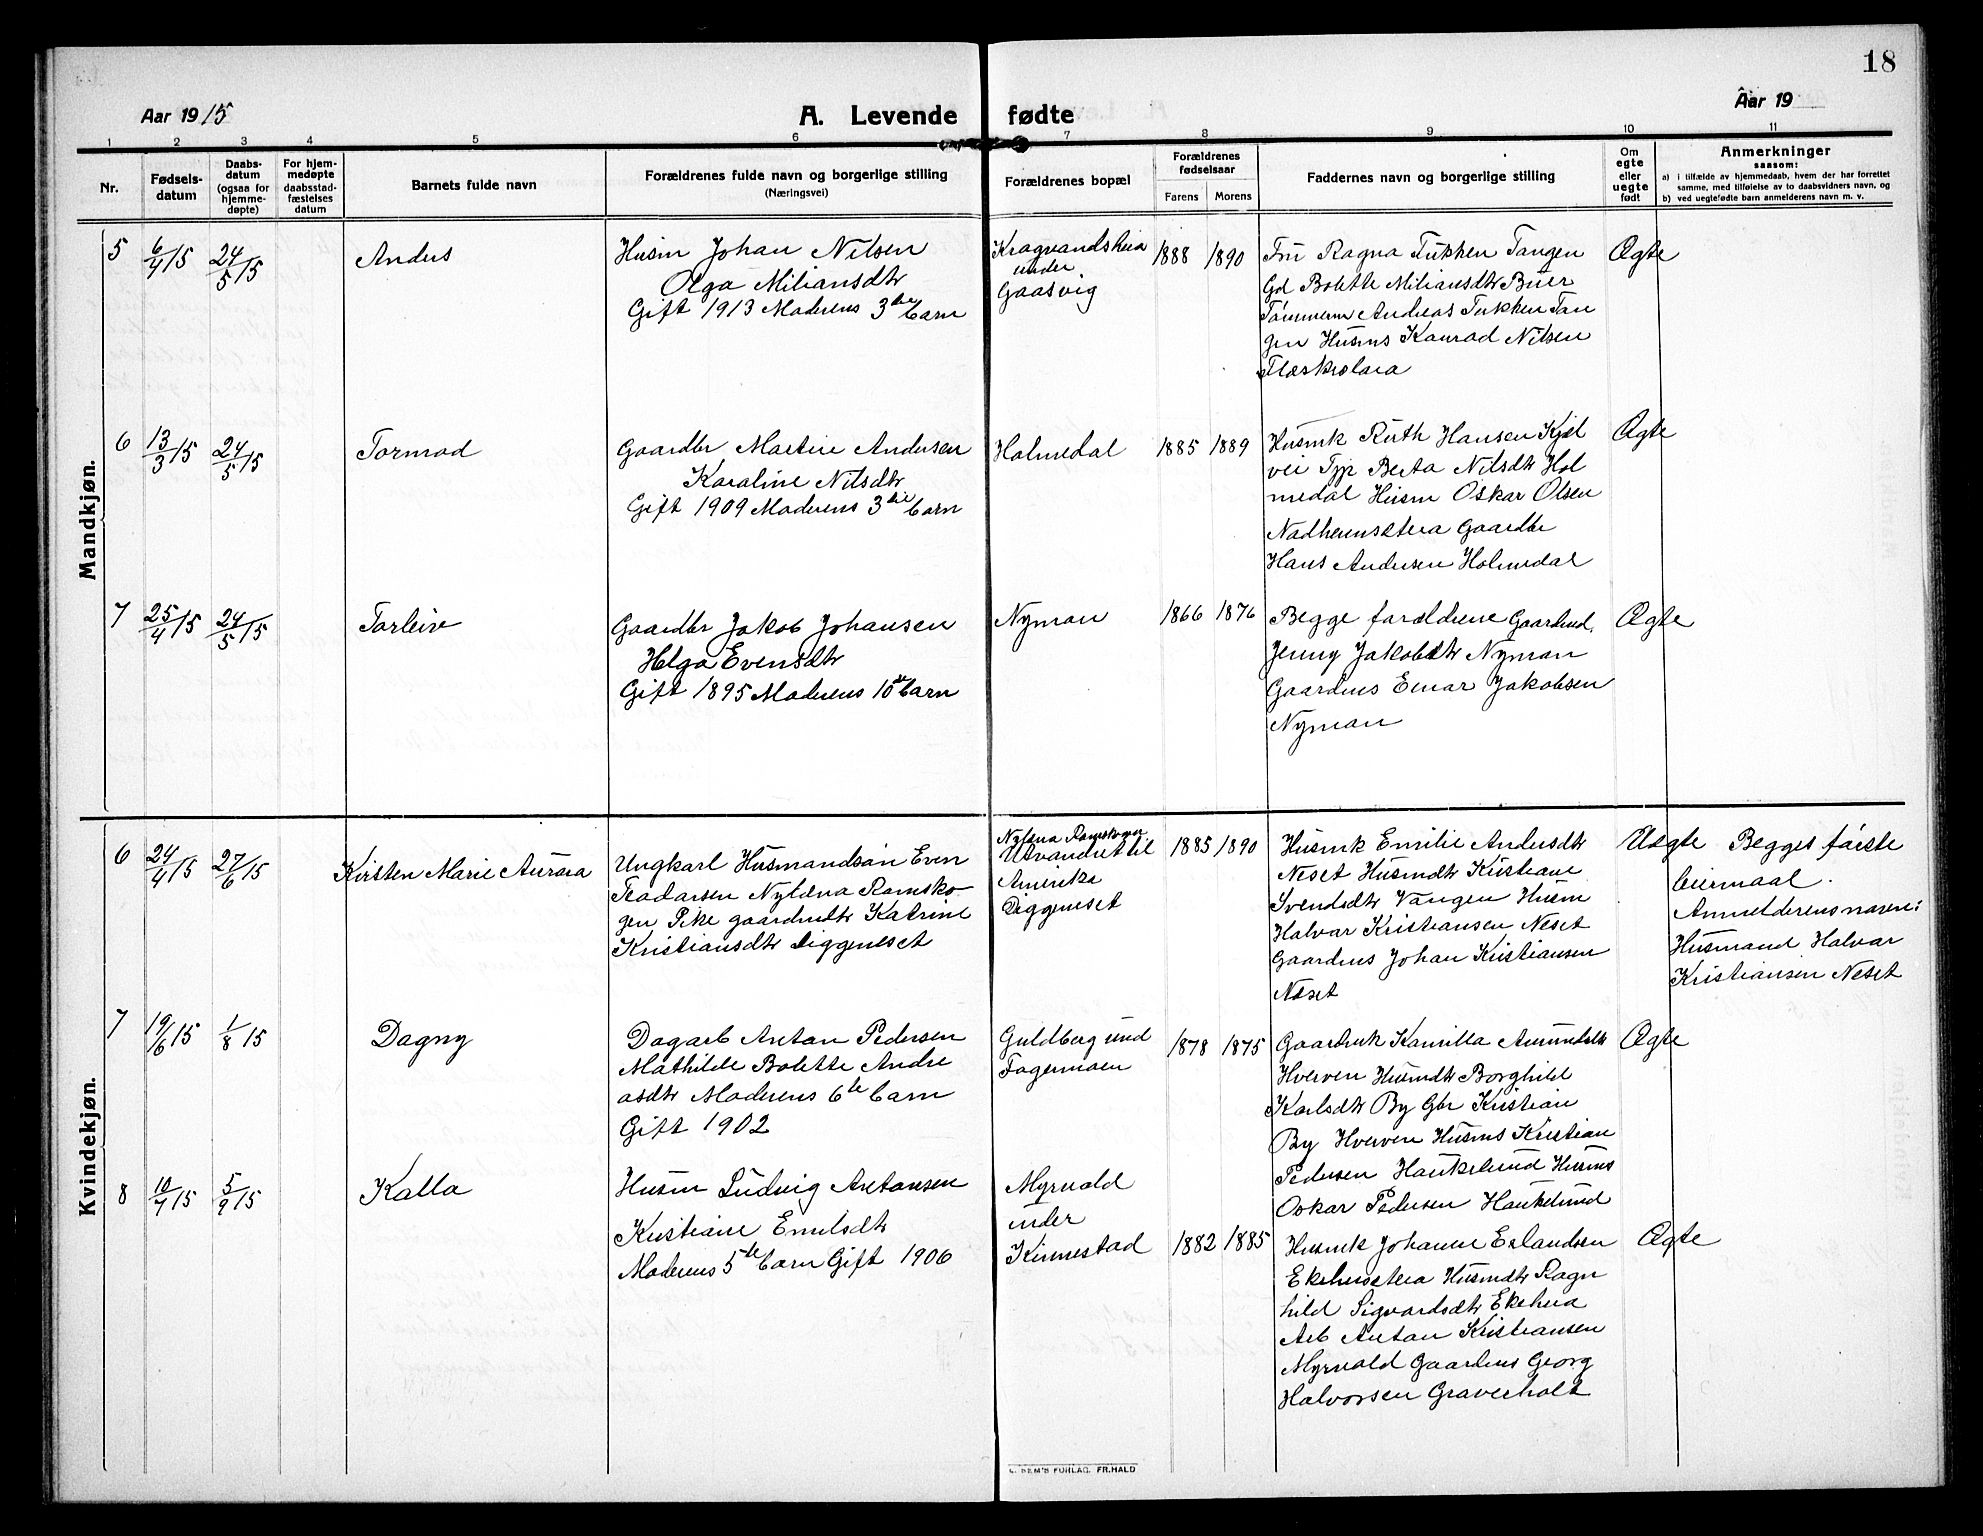 18
Aar 1915
A. Levende fødte
Aar 19
1 2 3 4 5 6 7 8 9 10 11
Nr.
Fødsels-
datum
Daabs-
datum
(ogsaa for
hjemme-
døpte)
For hjem-
medøpte
daabsstad-
fæstelses
datum
Barnets fulde navn
Forældrenes fulde navn og borgerlige stilling
(Næringsvei)
Forældrenes bopæl
Forældrenes
fødselsaar
Farens Morens
Faddernes navn og borgerlige stilling
Om
egte
eller
uegte
født
Anmerkninger
saasom:
a) i tilfælde av hjemmedaab, hvem der har forrettet
samme, med tilføielse av to daabsvidners navn, og
b) ved uegtefødte barn anmelderens navn m. v.
Mandkjøn.
5 6/4 15 24/5 15
Anders
Husm Johan Nilsen
Olga Miliansdtr
Gift 1913 Moderens 3die barn
Kragvandsheia
under
Gaasvig
1888 1890
Fru Ragna Tukken Tangen
Gd Bolette Miliansdtr Buer
Tömmerm Andreas Tukken Tan
gen Husms Konrad Nilsen
Ægte
6 13/3 15 24/5 15
Tormod
Gaardbr Martin Andersen
Karoline Nilsdtr
Gift 1909 Moderens 3die barn
Holmedal
1885 1889
Husmk Ruth Hansen Kjøl
vei Tjp Berta Nilsdtr Hol
medal Husm Oskar Olsen
Gaardbr
Hans Andersen Holmedal
Ægte
7 25/4 15 24/5 15
Torleiv
Gaardbr Jakob Johansen
Helga Evensdtr
Gift 1895 Moderens 10de barn
Nyman
1866 1876
Begge forældrene Gaardmd.
Jenny Jakobsdtr Nyman
Gaardms Einar Jakobsen
Nyman
Ægte
Kvindekjøn.
6 24/4 15 27/6 15
Kirsten Marie Aurora
Ungkarl Husmandssøn Even
Teodorsen Nyløna Romsko-
gen Pike gaardmdtr Katrine
Kristiansdtr Liggeneset
Nyløna Romskogen
Utvandret til
Amerika
Liggeneset
1885 1890
Husmk Emilie Andersdtr
Neset Husmdtr Kristiane
Svendsdtr Vangen Husm
Halvar Kristiansen Neset
Gaardms Johan Kristiansen
Neset
Uægte
Begges første
leiermaal.
Anmelderens navn:
Husmand Halvar
Kristiansen Neset
7 19/6 15 1/8 15
Dagny
Dagarb Anton Pedersen
Mathilde Bolette Andre
asdtr Moderens 6te barn
Gift 1902
Guldberg und
Fagermoen
1878 1875
Gaardmk Kamilla Amundsdtr
Hverven Husmdtr Borghild
Karlsdtr By Gbr Kristian
By Hverven Husms Kristian
Pedersen Haukelund Husms
Oskar Pedersen Haukelund
Ægte
8 10/7 15 5/9 15
Kalla
Husm Ludvig Antonsen
Kristiane Emilsdtr
Moderens 5te barn Gift 1906
Myrvold
under
Kinnestad
1882 1885
Husmk Johanne Erlandsen
Husmdtr Ragn
hild Sigvardsdtr Ekeheia
Arb Anton Kristiansen
Myrvold Gaardms Georg
Halvorsen Graverholt
Ægte
SEM'S FORLAG. FR.HALD